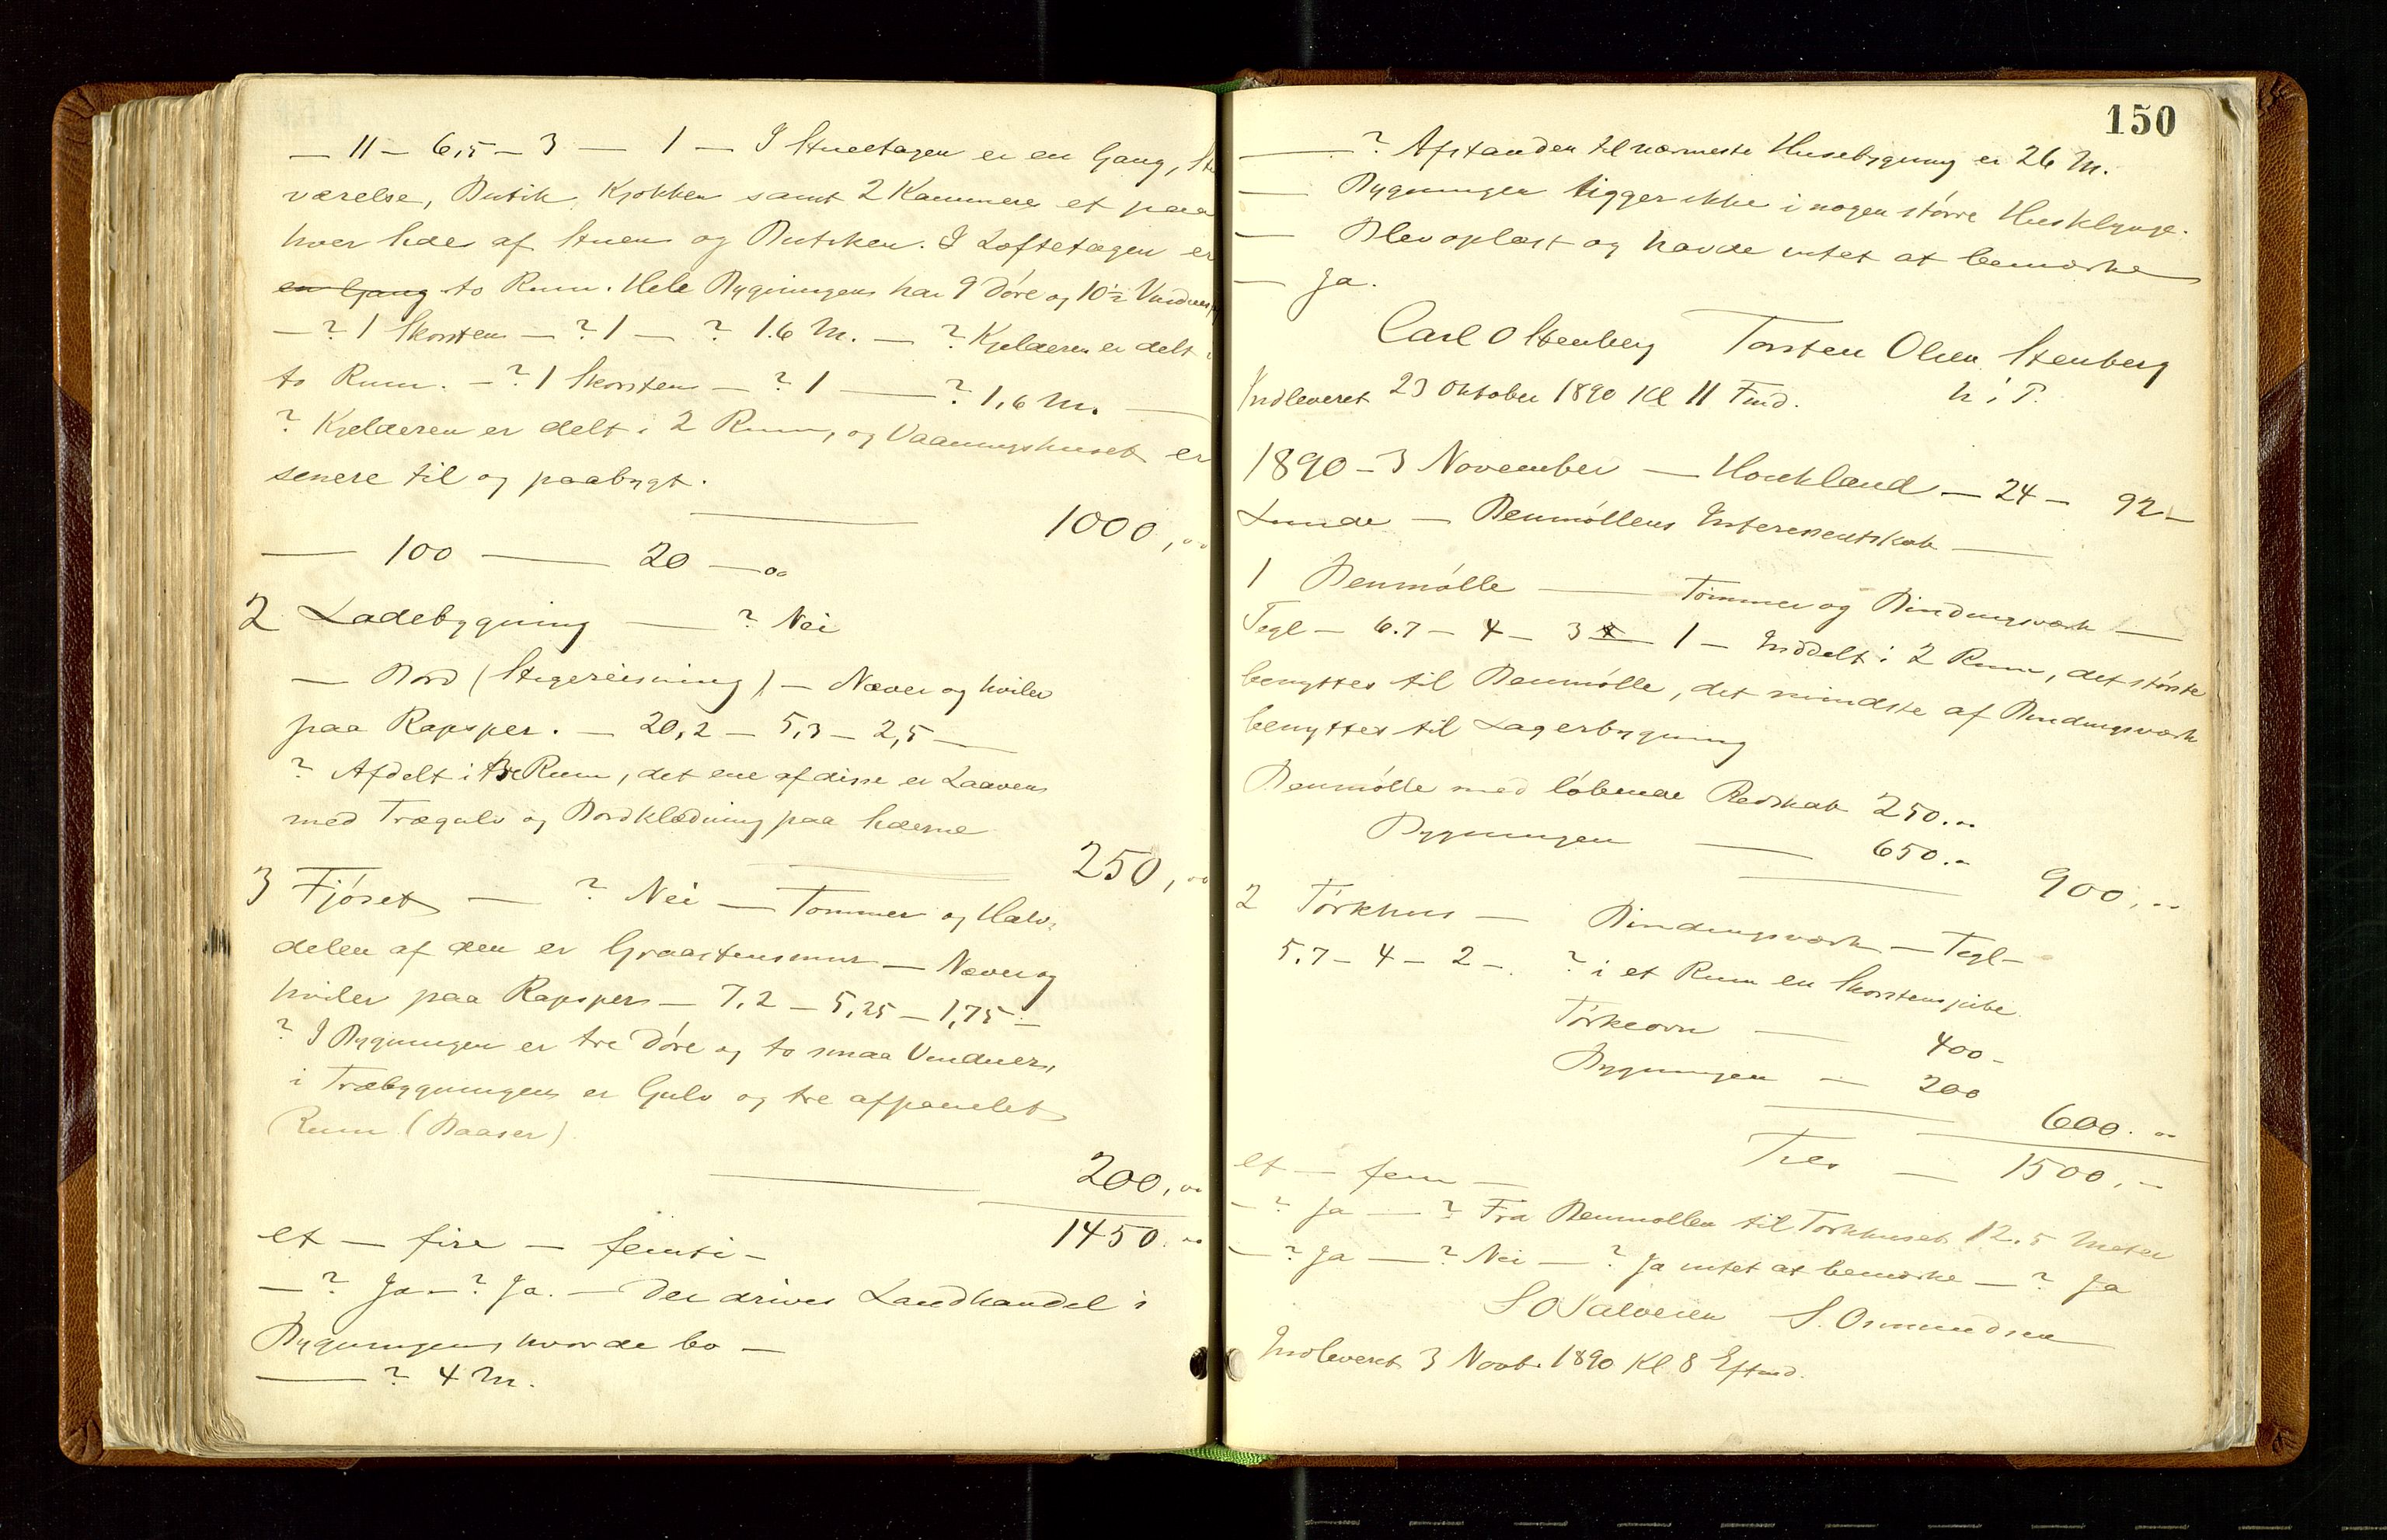 — 11 — 6,5 — 3 — 1 — I Stueetagen er en Gang,
værelse, Butik, Kjøkken samt 2 Kammere et paa
hver Side af Stuen og Butiken. I Loftetagen er
en Gang to Rum. Hele Bygningen har 9 Døre og 10½ Vinduer
— ? 1 Skorsten — ? 1 — ? 1.6 M. — ? Kjelderen er delt i
to Rum. — ? 1 Skorsten — ? 1 — ? 1,6 M. —
? Kjelderen er delt i 2 Rum, og Vaaningshuset er
senere til og paabygt.
1000,00
— 100 — 20 — 00
2 Ladebygning — ? Nei
— Bord (Stegereisning) — Næver og hviler
paa Rapsper. — 20,2 — 5,3 — 2,5 —
? Afdelt i tre Rum, det ene af disse er Laaven
med Trægulv og Bordklædning paa Siderne
250,00
3 Fjøset — ? Nei — Tømmer og Halv-
delen af den er Graastensmur — Næver og
hviler paa Rapsper — 7,2 — 5,25 — 1,75 —
? I Bygningen er tre Døre og to smaa Vinduer,
i Træbygningen er Gulv og tre afpanelet
Rum (Baaser)
200,00
et — fire — femti — 1450.00
— ? Ja — ? Ja. — Der drives Landhandel i
Bygningen hvor de bo —
— ? 4 M.
150
— ? Afstanden til nærmeste Husebygning er 26 M.
— Bygningen ligger ikke i nogen større Husklynge.
— Blev oplæst og havde intet at bemærke
— Ja.
Carl O Stenberg Torsten Olsen Stenberg
Indleveret 23 Oktober 1890 Kl 11 Fmd. h. i P.
1890 — 3 November — Houkland — 24 — 92 —
Lunde — Benmøllens Interessentskab —
1 Benmølle — Tømmer og Bindingsværk —
Tegl — 6.7 — 4 — 3 — 1 — Inddelt i 2 Rum, det største
benyttes til Benmølle, det mindste af Bindingsværk
benyttes til Lagerbygning
Benmølle med løbende Redskab 250.00
Bygningen — 650.00
900,00
2 Tørkhus — Bindingsværk — Tegl —
5,7 — 4 — 2 —. ? i et Rum en Skorstenspibe
Tørkeovn — 400 —
Bygningen — 200
600.00
et — fem — Tils — 1500,—
— ? Ja — ? Fra Benmøllen til Tørkhuset 12.5 Meter
— ? Ja — ? Nei — ? Ja intet at bemærke — ? Ja
S O Salvesen S. Osmundsen
Indleveret 3 Novbr 1890 Kl 8 Eftmd.